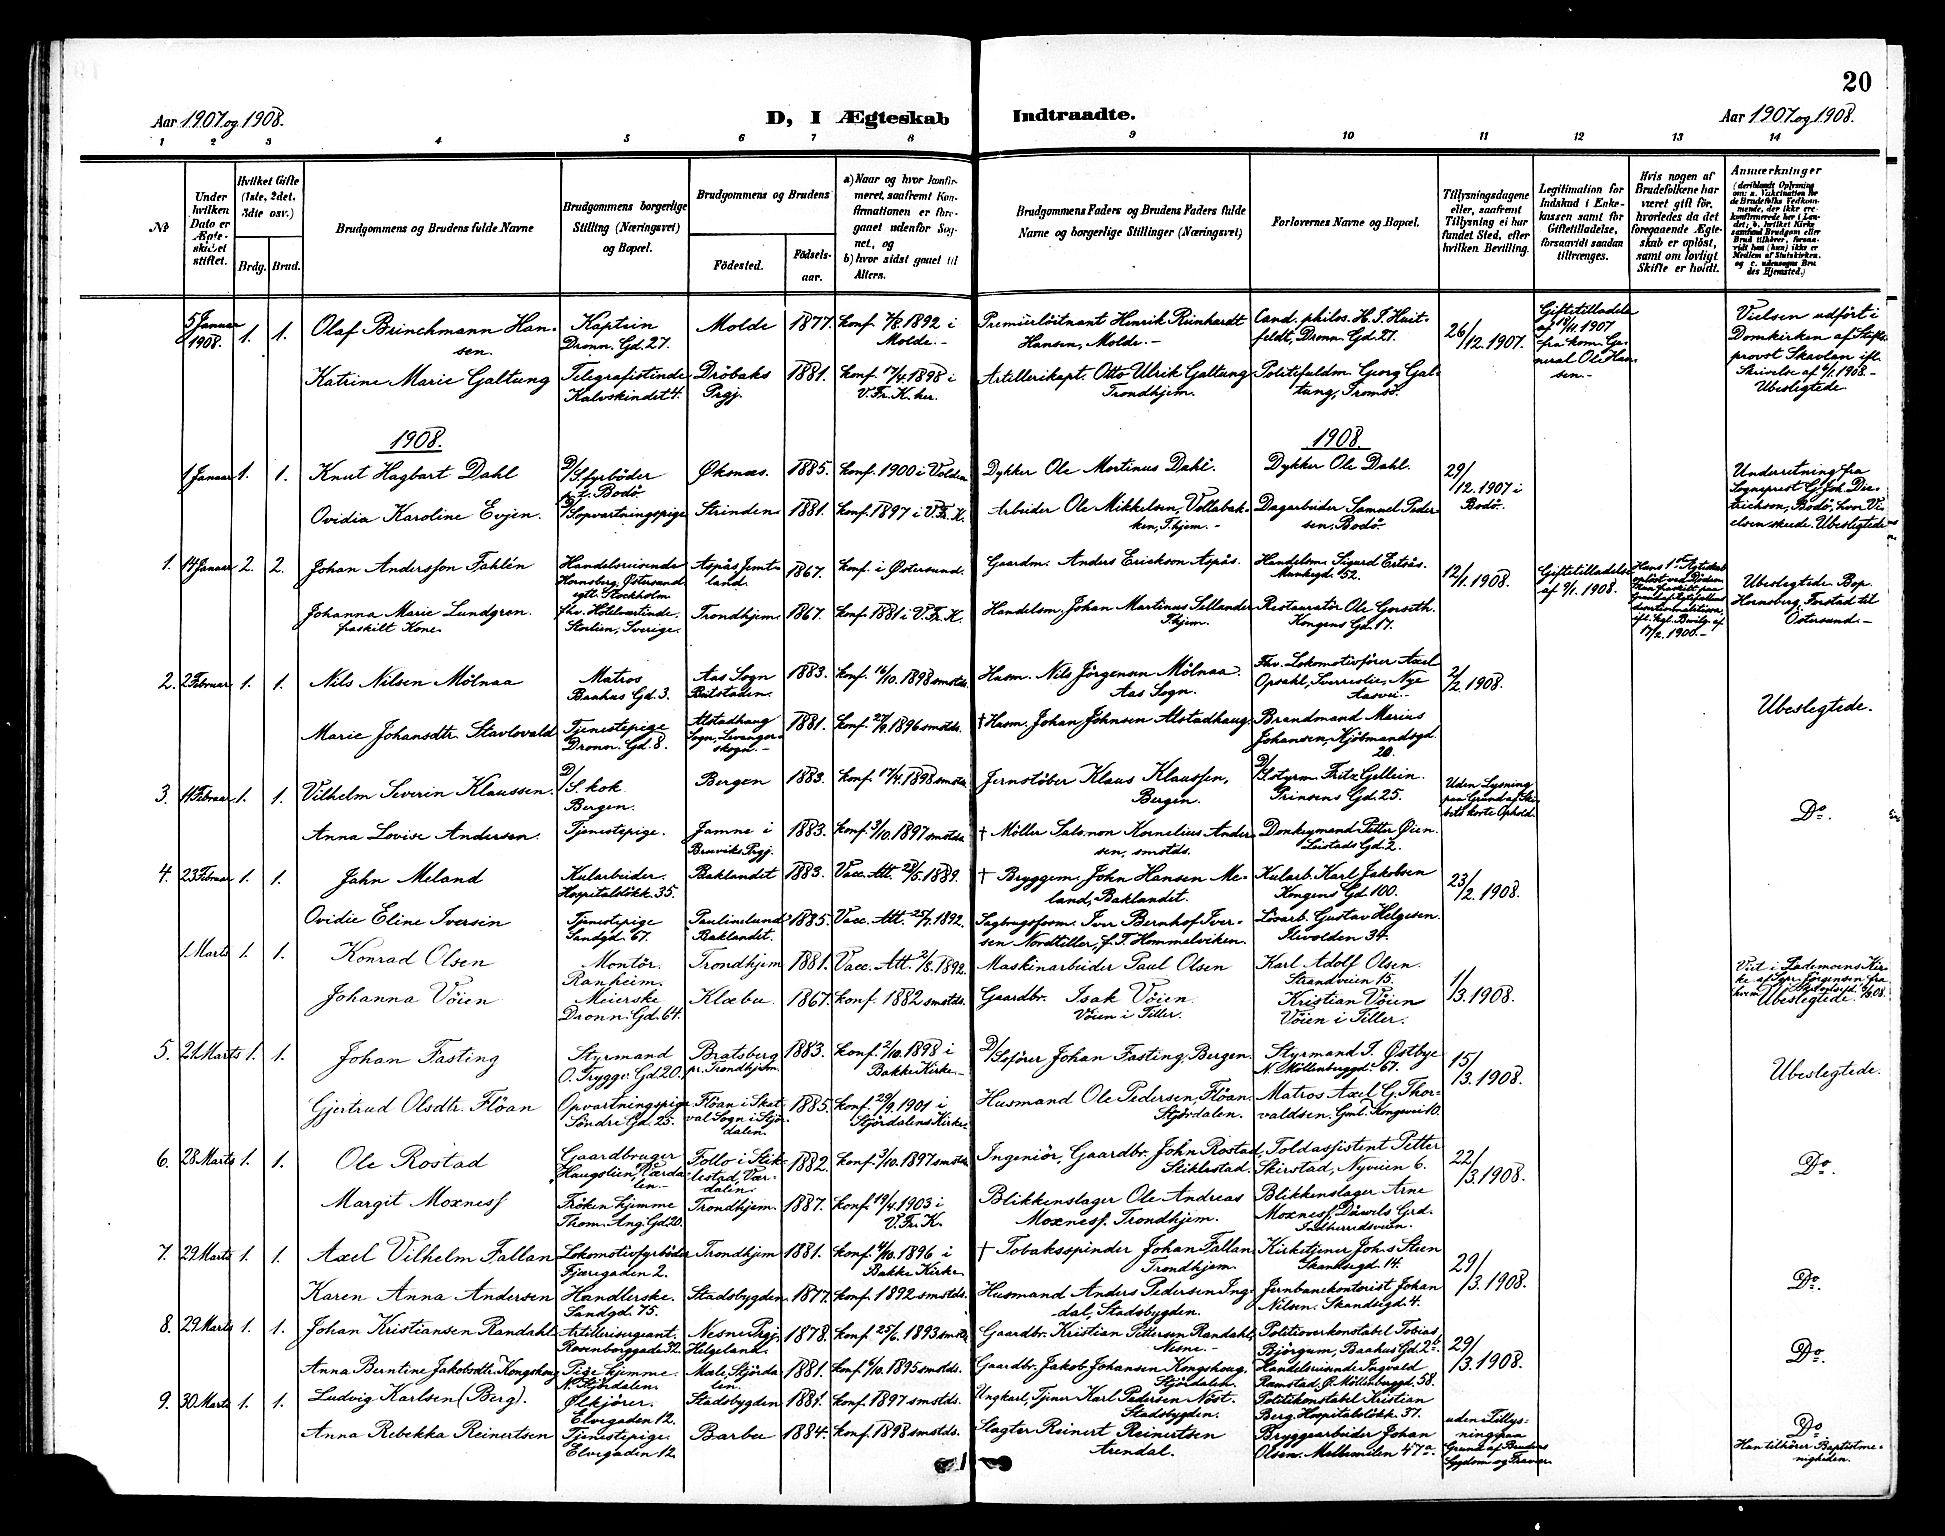 20
Aar 1907 og 1908.
D, I Ægteskab Indtraadte.
Aar 1907 og 1908.
1 2 3 4 5 6 7 8 9 10 11 12 13 14
№
Under hvilken Dato er Ægteskabet stiftet.
Hvilket Gifte (1ste, 2det, 3dte osv.)
Brdg. Brud.
Brudgommens og Brudens fulde Navne
Brudgommens borgerlige Stilling (Næringsvei) og Bopæl.
Brudgommens og Brudens
Fødested.
Fødselsaar.
a) Naar og hvor konfirmeret, saafremt Konfirmationen er foregaaet udenfor Sognet, og
b) hvor sidst gaaet til Alters.
Brudgommens Faders og Brudens Faders fulde Navne og borgerlige Stillinger (Næringsvei)
Forlovernes Navne og Bopæl.
Tillysningsdagene eller, saafremt Tillysning ei har fundet Sted, efter hvilken Bevilling.
Legitimation for Indskud i Enkekassen samt for Giftetilladelse, forsaavidt saadan tiltrænges.
Hvis nogen af Brudefolkene har været gift før, hvorledes da det foregaaende Ægteskab er opløst, samt om lovligt Skifte er holdt.
Anmærkninger
5 Januar 1908. 1. 1. Olaf Brinchmann Hansen. Kaptein Dronn. Gd. 27. Molde 1877. Konf. 7/8. 1892 i Molde.- Premierløitnant Henrik Reinhardt Hansen, Molde.- Cand. philos. H. T. Huitfeldt, Dronn. Gd. 27. 26/12. 1907. Giftetilladelse af 12/11. 1907 fra kom. General Ole Hansen.- Vielsen udført i Domkirken af Stiftsprovst Skavlan ifl. Skrivelse af 6/1. 1908.- Ubeslegtede.
Katrine Marie Galtung Telegrafistinde Kalvskindet 4. Drøbaks Prgj. 1881. Konf. 17/4. 1898 i V. Fr. K. her. Artillerikapt. Otto Ulrik Galtung Trondhjem. Politifuldm. Georg Galtung, Tromsø.
1908. 1908.
1 Januar 1. 1. Knut Hagbart Dahl D/S. fyrbøder p. t. Bodø. Øksnæs. 1885. Konf. 1900 i Volden Dykker Ole Martinus Dahl. Dykker Ole Dahl. 29/12. 1907 i Bodø. Underretning fra Sogneprest G. Joh. Dietrichson, Bodø, hvor Vielsen skede. Ubeslegtede
Ovidia Karoline Evjen. D/Sopvartningspige Strinden 1881. Konf. 1897 i V. Fr. K. Arbeider Ole Mikkelsen, Vollabakken, T.hjem.- Dagarbeider Samuel Pedersen, Bodø.
1. 14 Januar 2. 2. Johan Andersson Fahlén Handelsreisende Hornsberg, Østersund Stockholm Aspås Jemtland. 1867. Konf. i Østersund. Gaardm. Anders Erickson Aspås. Handelsm. Sigurd Ertsås Munkegd. 52. 12/1. 1908. Giftetilladelse af 9/1. 1908. Hans 1ste Ægteskab opløst ved Døden. 17/2. 1900.- Ubeslegtede. Bop. Hornsberg, Forstad til Östersund.-
Johanna Marie Lundgren. fraskilt Kone. fhv. Hotelvertinde. Storlien, Sverige. Trondhjem. 1867. Konf. 1881 i V. Fr. K. Handelsm. Johan Martinus Sellander T.hjem. Restauratør Ole Gorseth. Kongens Gd. 17.
2. 2 Februar 1. 1. Nils Nilsen Mølnaa Matros Baahus Gd. 3. Aas Sogn Beitstaden. 1883. Konf. 16/10. 1898 smstds. Husm. Nils Jørgensen Mølnaa. Aas Sogn. Fhv. Lokomotivfører Axel Opsahl, Sverreslie, Nye Aasvei. 2/2. 1908. Ubeslegtede.
Marie Johansdtr. Stavlovald Tjenestepige Dronn. Gd. 8. Alstadhaug Sogn, Levangerskogn.- 1881. Konf. 27/9. 1896 smstds. † Husm. Johan Johnsen Alstadhaug. Brandmand Marius Johansen, Kjøbmandsgd. 20.
3. 11 Februar 1. 1. Vilhelm Severin Klaussen. D/S. kok Bergen. Bergen 1883. Konf. 17/4. 1898 smstds Jernstøber Klaus Klaussen, Bergen. D/Sstyrm. Fritz Gellein. Prinsens Gd. 25. Uden Lysning paa Grund af Skibets korte Ophold. Do.
Anna Lovise Andersen. Tjenestepige. Jamne i Bruviks Prgj. 1883. Konf. 3/10. 1897 smstds † Møller Salomon Kornelius Andersen, smstds. Donkeymand Petter Øien. Leistads Gd. 2.
4. 23 Februar 1. 1. Jahn Meland Kularbeider. Hospitalsløkk. 35. Baklandet 1883. Vacc. Att. 28/5. 1889. † Bryggem. John Hansen Meland, Baklandet. Kularb. Karl Jakobsen Kongens Gd. 100. 23/2. 1908.
Ovidie Eline Iversen Tjenestepige Sandgd. 67. Paulinelund, Baklandet. 1885. Vacc. Att. 25/7. 1892. Sagbrugsform. Iver Bernhof Iversen Nordtiller, f. T. Hommelviken. Løsarb. Gustav Helgesen. Ilevolden 34.
1. Marts 1. 1. Konrad Olsen Montør. Ranheim. Trondhjem 1881. Vacc. Att. 2/8. 1892. Maskinarbeider Paul Olsen Karl Adolf Olsen. Strandveien 15. 1/3. 1908. Viet i Lademoens Kirke af Spr. Jørgensen fra hvem 6/3 08. Ubeslegtede.
Johanna Vøien Meierske Dronn. Gd. 64. Klæbu 1867. Konf. 1882 smstds. Gaardbr. Isak Vøien. Vøien i Tiller. Kristian Vøien Vøien i Tiller.
5. 21. Marts 1. 1. Johan Fasting Styrmand O. Trygg. Gd. 20. Bratsberg pr. Trondhjem. 1883. Konf. 2/10. 1898 i Bakke Kirke.- D/Sefører Johan Fasting, Bergen. Styrmand I. Østbye N. Møllenberggd. 67. 15/3. 1908. Ubeslegtede.
Gjertrud Olsdtr. Fløan Opvartningspige Søndre Gd. 25. Fløan i Skatval Sogn i Stjørdalen. 1885. Konf. 29/9. 1901 i Stjørdalens Kirke- Husmand Ole Pedersen, Fløan. Stjørdalen. Matros Axel G. Thorvaldsen. Gml. Kongevei 10.
6. 28 Marts 1. 1. Ole Rostad Gaardbruger "Haugslien", Værdalen.- Follo i Stiklestad, Værdalen. 1882. Konf. 3/10. 1897 smstds Ingeniør, Gaardbr. John Rostad, Stiklestad. Toldassistent Petter Skirstad, Nyveien 6. 22/3. 1908. Do.
Margit Moxness Frøken hjemme Thom. Ang. Gd. 20. Trondhjem. 1887. Konf. 19/4. 1903 i V. Fr. K. Blikkenslager Ole Andreas Moxness. Trondhjem. Blikkenslager Arne Moxness, Dåwils Grd. Indherredsveien.
7. 29 Marts 1. 1. Axel Vilhelm Fallan Lokomotivfyrbøder Fjæregaden 2. Trondhjem 1881. Konf. 4/10. 1896 i Bakke Kirke † Tobaksspinder Johan Fallan Trondhjem. Kirketjener Johs Steen Skansegd. 14. 29/3. 1908. Do.
Karen Anna Andersen Handlerske. Sandgd. 75. Stadsbygden. 1877. Konf. 1892 smstds. Husmand Anders Pedersen Ingdal, Stadsbygden. Jernbanekontorist Johan Nilsen. Skansegd. 4.
8. 29 Marts 1. 1. Johan Kristiansen Randahl Artillerisergeant. Rosenborggade 32. Nesne Prgj. Helgeland. 1878. Konf. 25/6. 1893 smstds Gaardbr. Kristian Pettersen Randahl, Nesne.- Politioverkonstabel Tobias Bjørgum, Baahus Gd. 2b 29/3. 1908. Do.
Anna Berntine Jakobsdtr. Kongshaug Pige hjemme. N. Stjørdalen. Mæle, Stjørdalen. 1881. Konf. 6/10. 1895 smstds. Gaardbr. Jakob Johansen Kongshaug, Stjørdalen. Handelsreisende Ingvald Ramstad, Ø. Møllenberggd. 58.
9. 30 Marts 1. 1. Ludvig Karlsen (Berg). Ølkjører. Elvegaden 12. Stadsbygden 1881. Konf. 1897 smstds. Ungkarl, Tjener Karl Pedersen Nøst. Stadsbygden. Politikonstabel Kristian Berg, Hospitalsløkk. 37. uden Tillysning paa Grund af Brudens Sygdom og Do. Han tilhører Baptistmenigheden.
Anna Rebekka Reinertsen Tjenestepige. Elvegaden 12. Barbu 1884. Konf. 1898 smstds. Slagter Reinert Reinertsen Arendal. Bryggearbeider Johan Olsen. Mellemilen 47a.